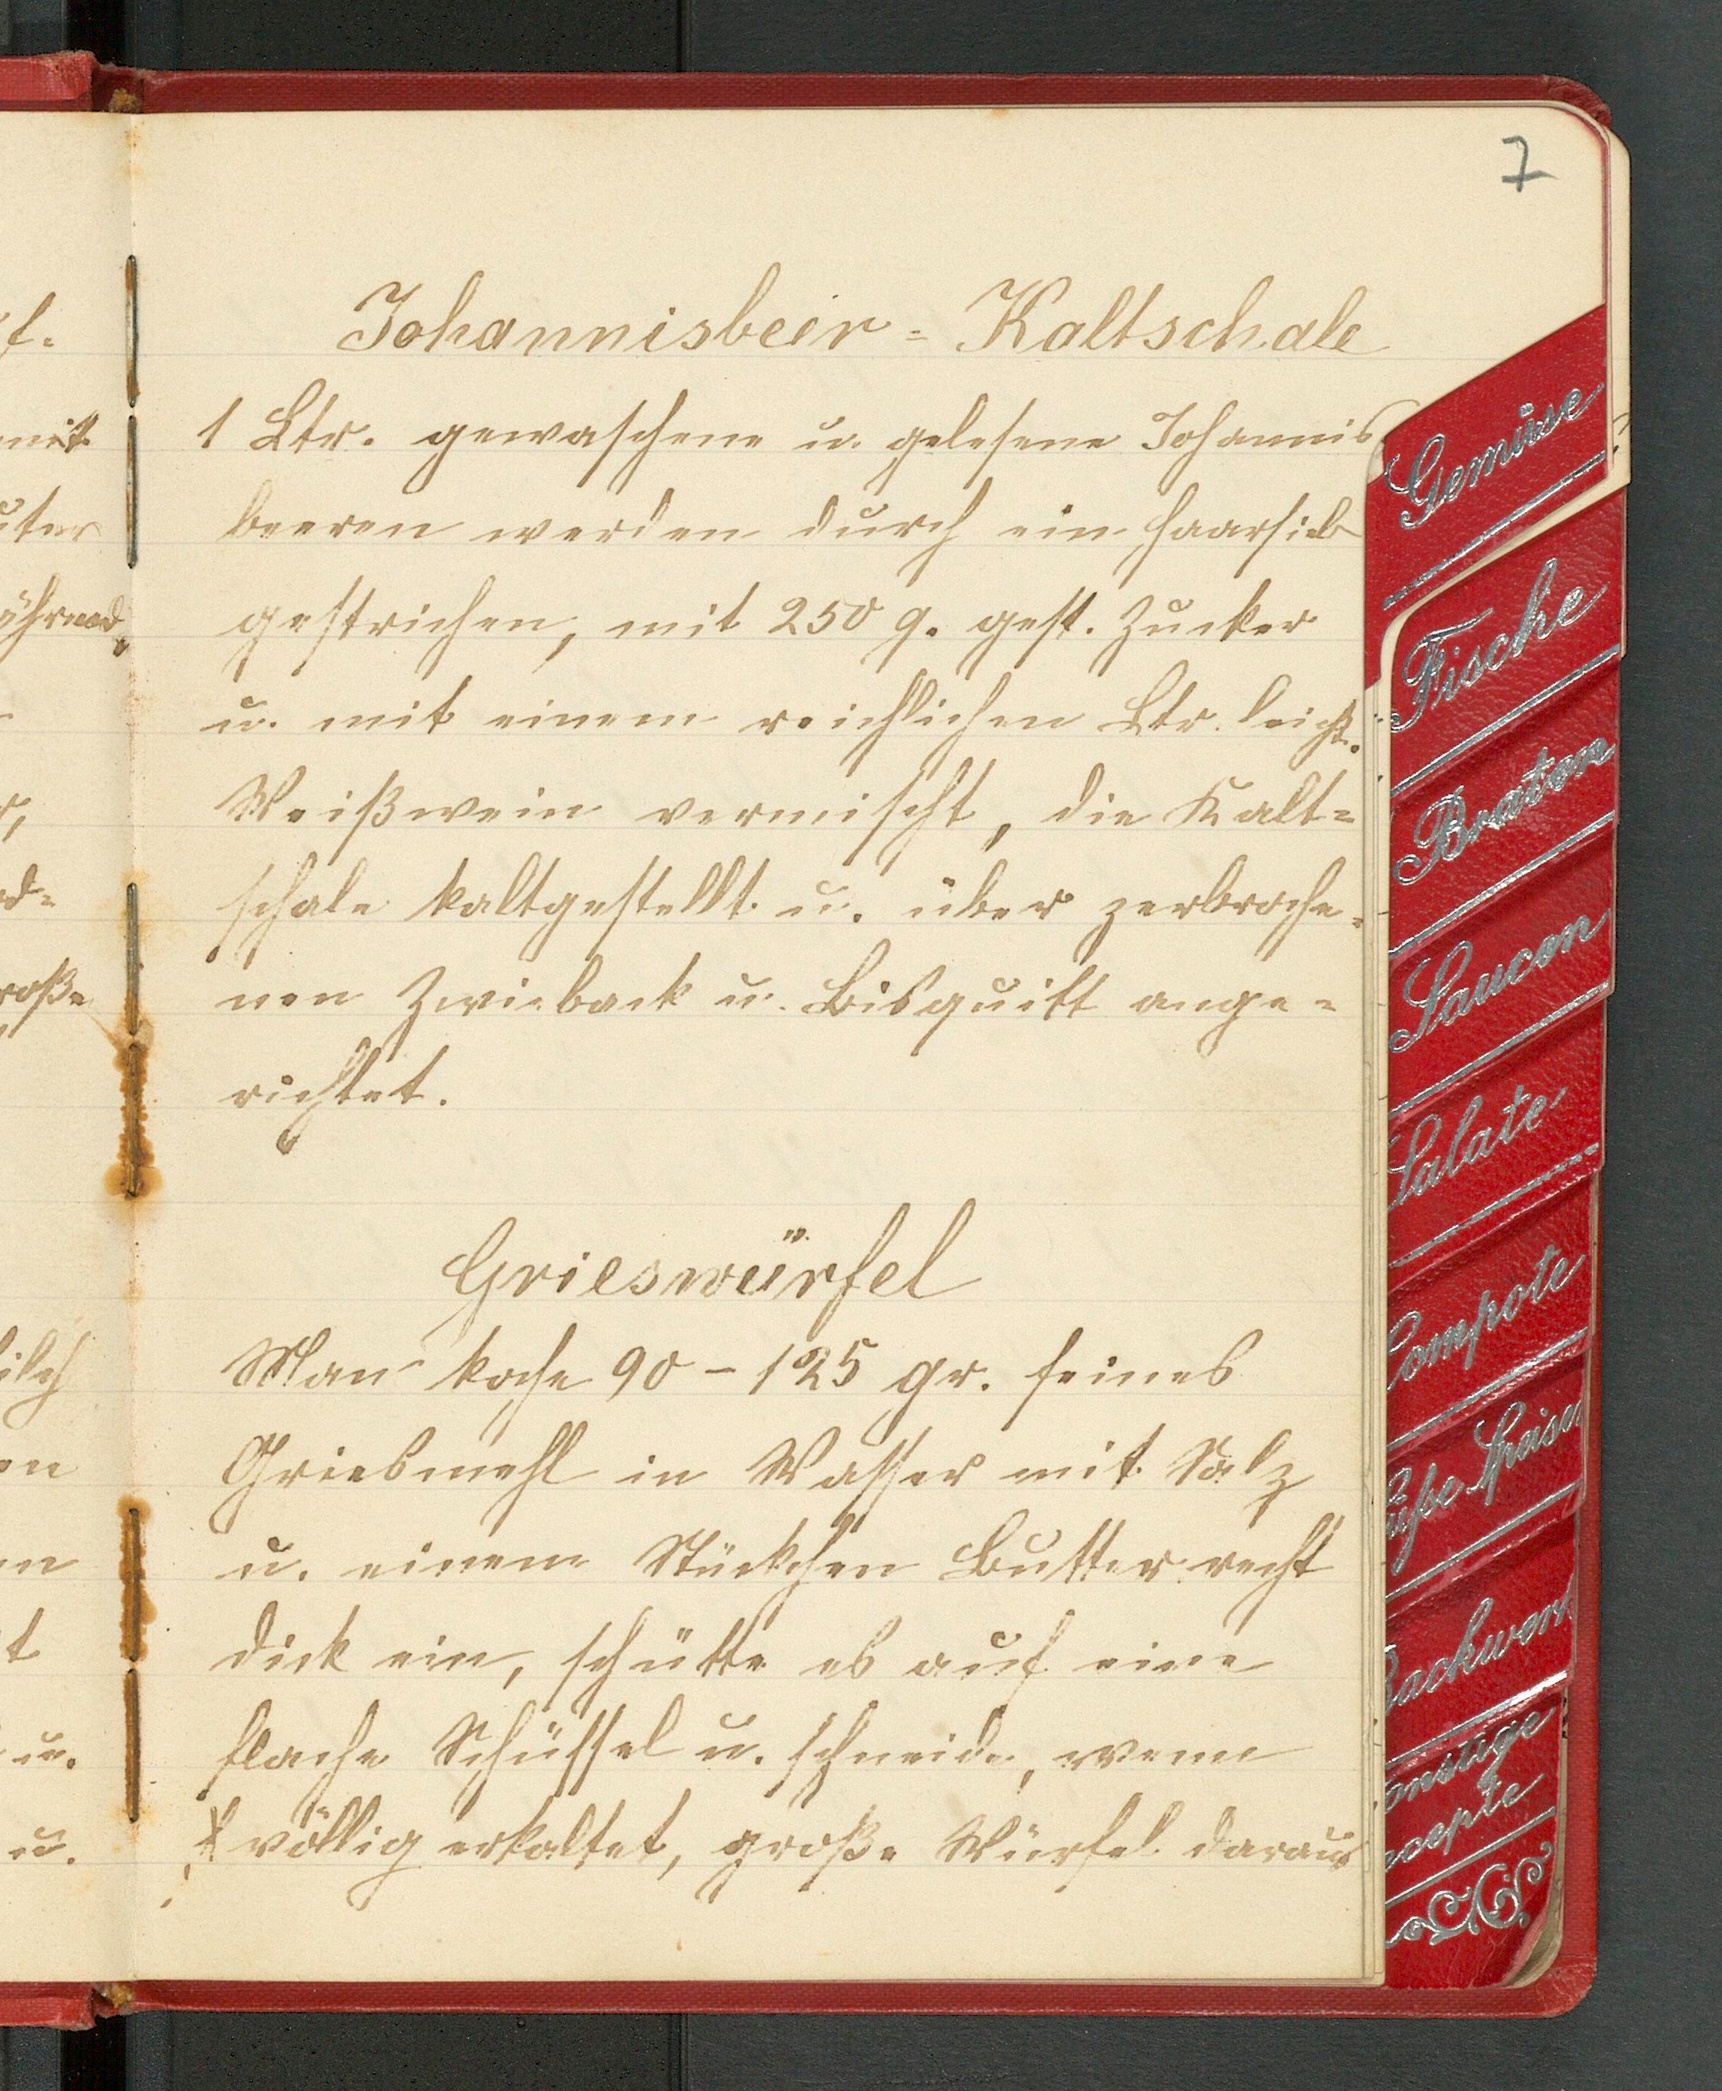 7
Johannisbeir = Kaltschale
1 Ltr. gewaschene u. gelesene Johannis
beeren werden durch ein Haarsieb
gestrichen, mit 250 g. gest. Zucker
u. mit einem reichlichen Ltr. leicht.
Weißwein vermischt, die Kalt=
schale kaltgestellt u. über zerbroche=
nen Zwieback u. Bisquitt ange=
richtet.
Grieswürfel
Man koche 90 - 125 gr. feines
Griesmehl in Wasser mit Salz
u. einem Stückchen Butter recht
dick ein, schütte es auf eine
flache Schüssel u. schneide, wenn
völlig erkaltet, große Würfel daraus
Gemüse
Fische
Braten
Saucen
Salate
Compote
Süße Speisen
Backwerk
Sonstige
Recepte